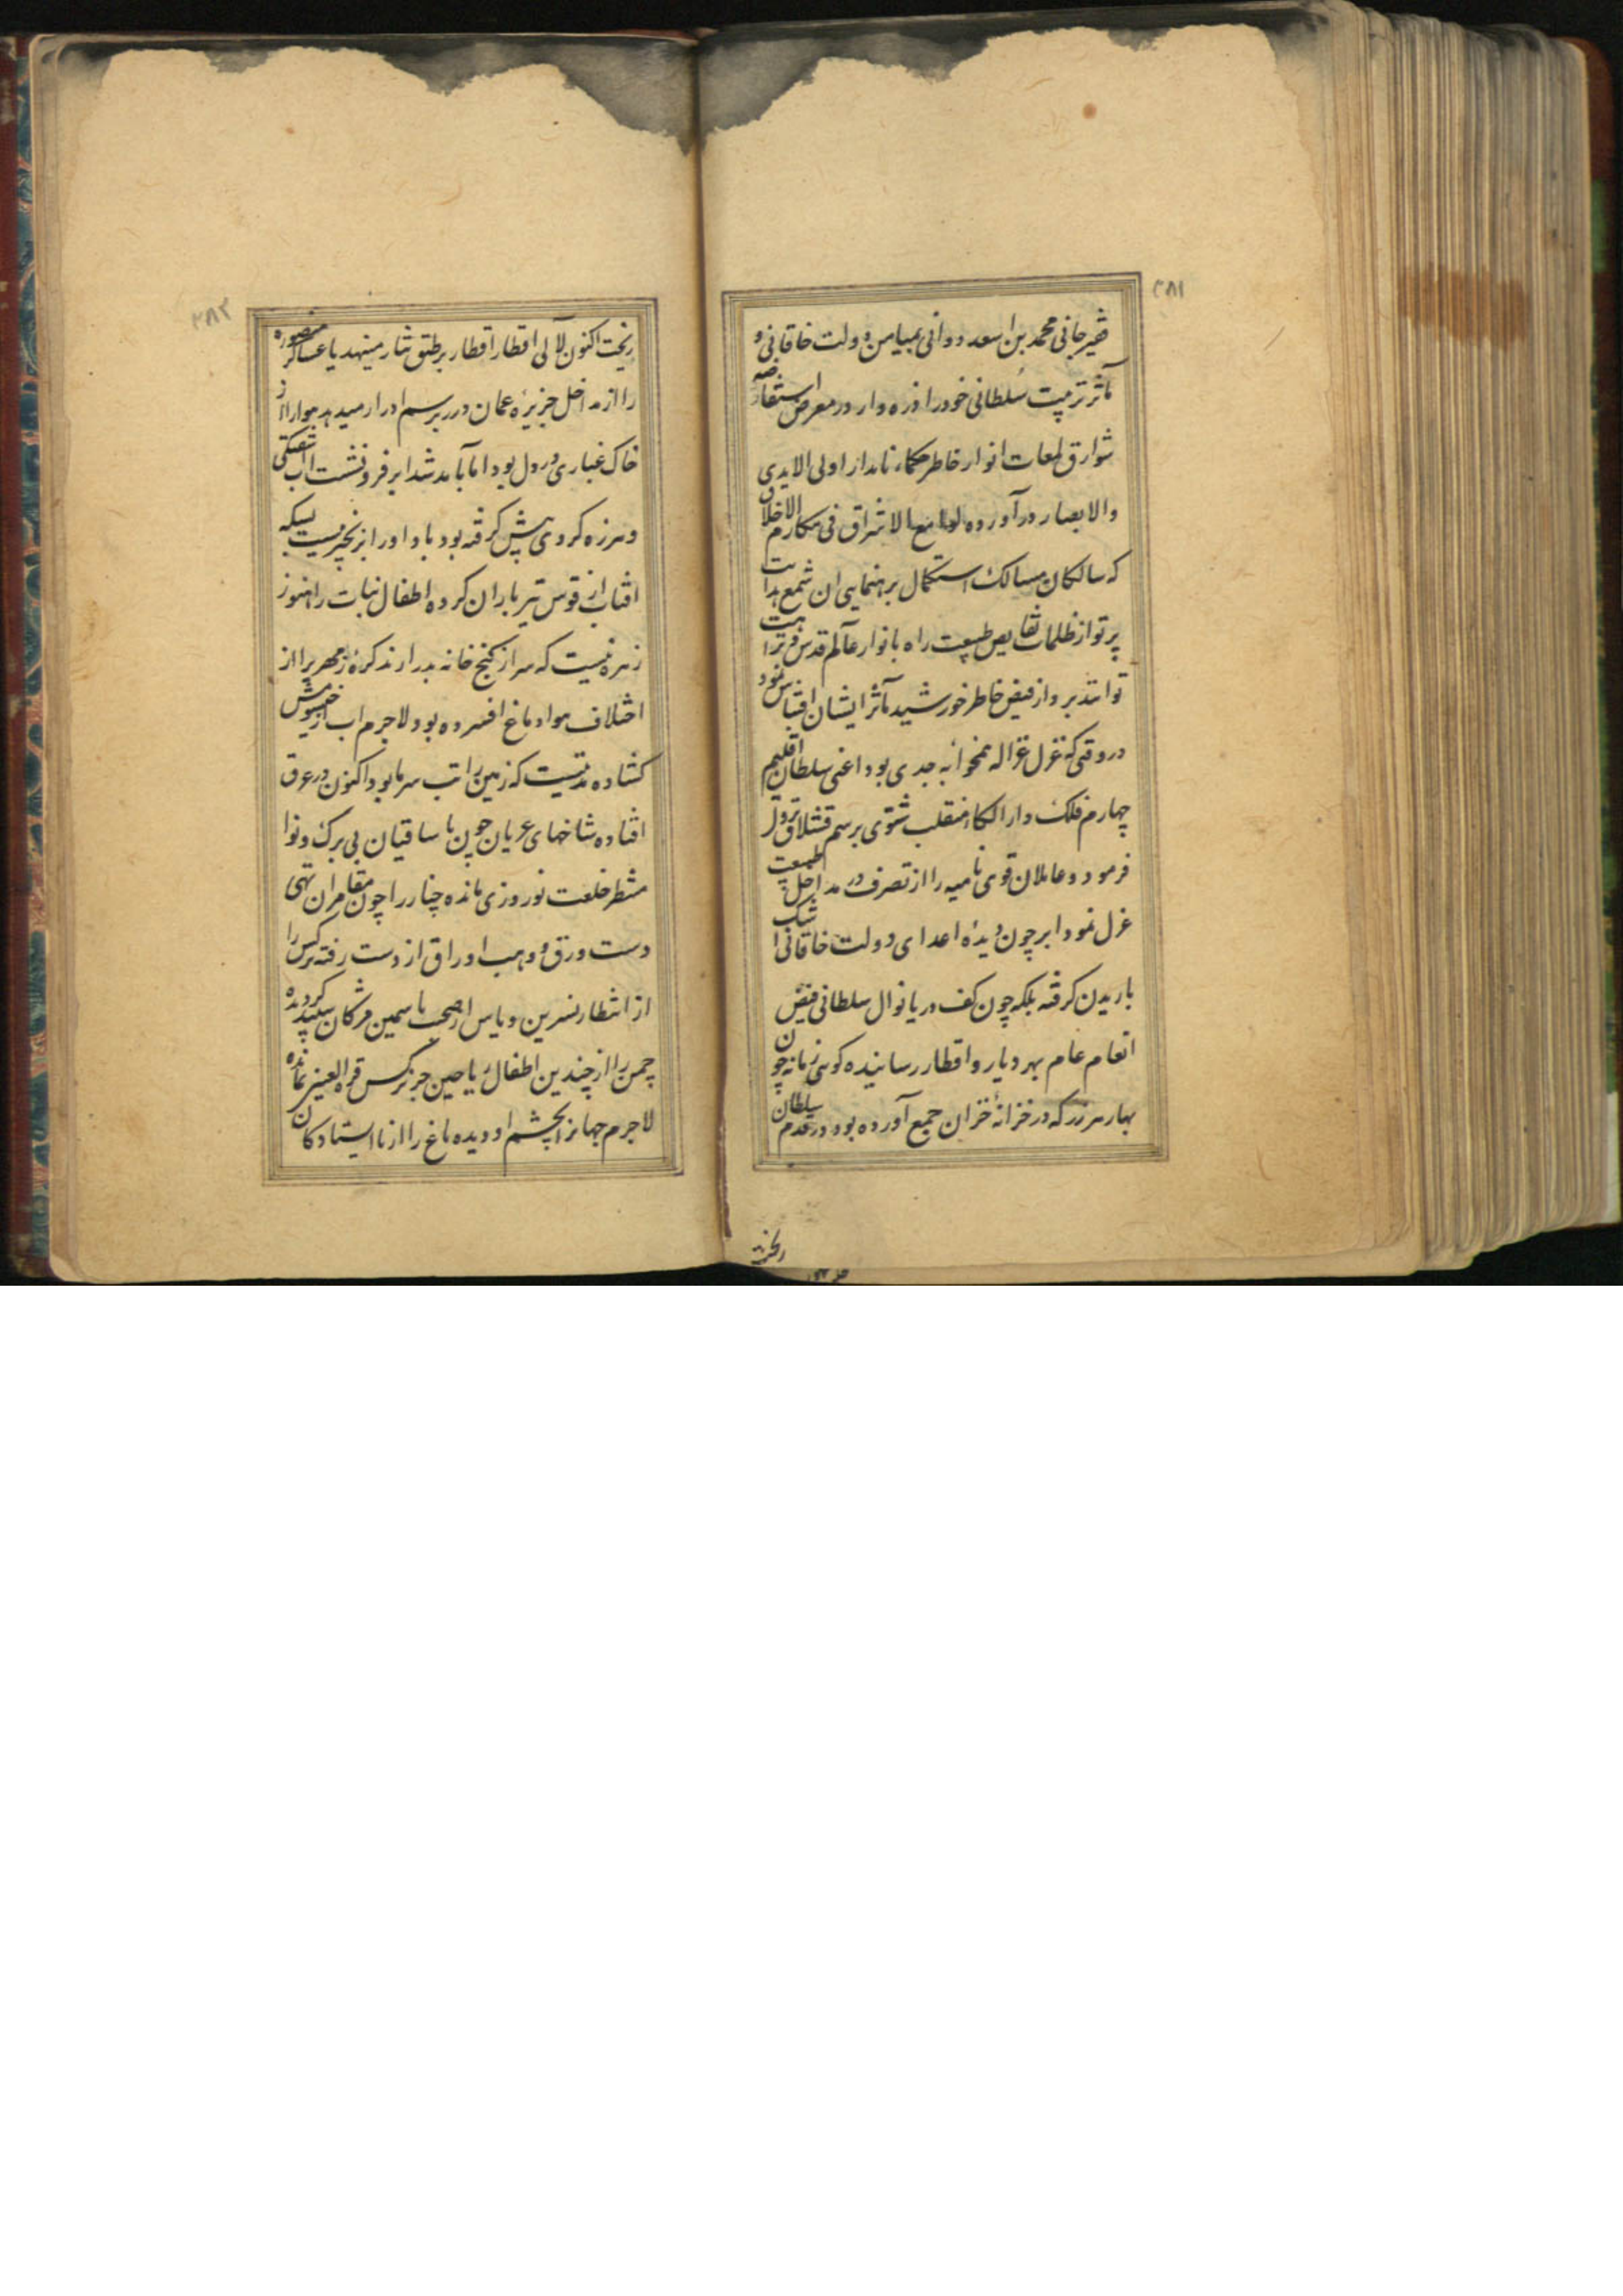 ۲۸۱
فقیر جانی محمد بن اسعد دوانی بمیامن دولت خاقانی و
مآثر تربیت سلطانی خود را ذره وار در معرض استفاضه
شوارق لمعات انوار خاطر حکماء نامدار اولی الایدی
والابصار در آورده لوامع الاشراق فی مکارم الاخلاق
که سالکان مسالک استکمال برهنمایی ان شمع هدایت
پرتو از ظلمات نقایص طبیعت راه بانوار عالم قدس
توانند برد از فیض خاطر خورشید مآثر ایشان اقتباس نمود
در وقتی که غزل غزاله همخوابه جدی بود اعنی سلطان اقلیم
چهارم فلک دار الملک منقلب شتوی برسم قشلاق نزول
فرمود و عاملان قوی نامیه را از تصرف در مداخل طبیعت
عزل نمود ابر چون دیدهٔ اعدای دولت خاقانی اشک
باریدن گرفته بلکه چون کف دریا نوال سلطانی فیض
انعام عام بهر دیار و اقطار رسانیده گویی زمانه چون
بهار هر زر که در خزانهٔ خزان جمع آورده بود در قدم سلطان
ریخت
۲۸۲
ریخت اکنون لآلی اقطار اقطار بر طبق نثار مینهد یا عساکر منصوره
را از مداخل جزیرهٔ عمان در برسم ادرار میدهد هوا را از
خاک غباری در دل بود اما بآمد شد ابر فرو نشست آب آشفتگی
و هرزه گردی پیش گرفته بود باد او را بزنجیر
افتاب از قوس تیر باران کرده اطفال نبات را هنوز
زهره نیست که سر از کنج خانه بدر ارند کرهٔ زمهریر را از
اختلاف هوا دماغ افسرده بود لاجرم اب از
گشاده مدتیست که زمین را تب سرما بود اکنون در عرق
افتاده شاخهای عریان چون ساقیان بی برگ و نوا
منتظر خلعت نوروزی مانده چنار را چون مقامران تهی
دست ورق و وهب اوراق از دست رفته نرگس را
از انتظار نسرین و یاس از صحبت یاسمین مژگان سپید گردیده
چمن را از چندین اطفال ریاحین جز نرگس قرة العینی نمانده
لاجرم جهانرا بچشم او دیده باغ را از نا ایستادگان